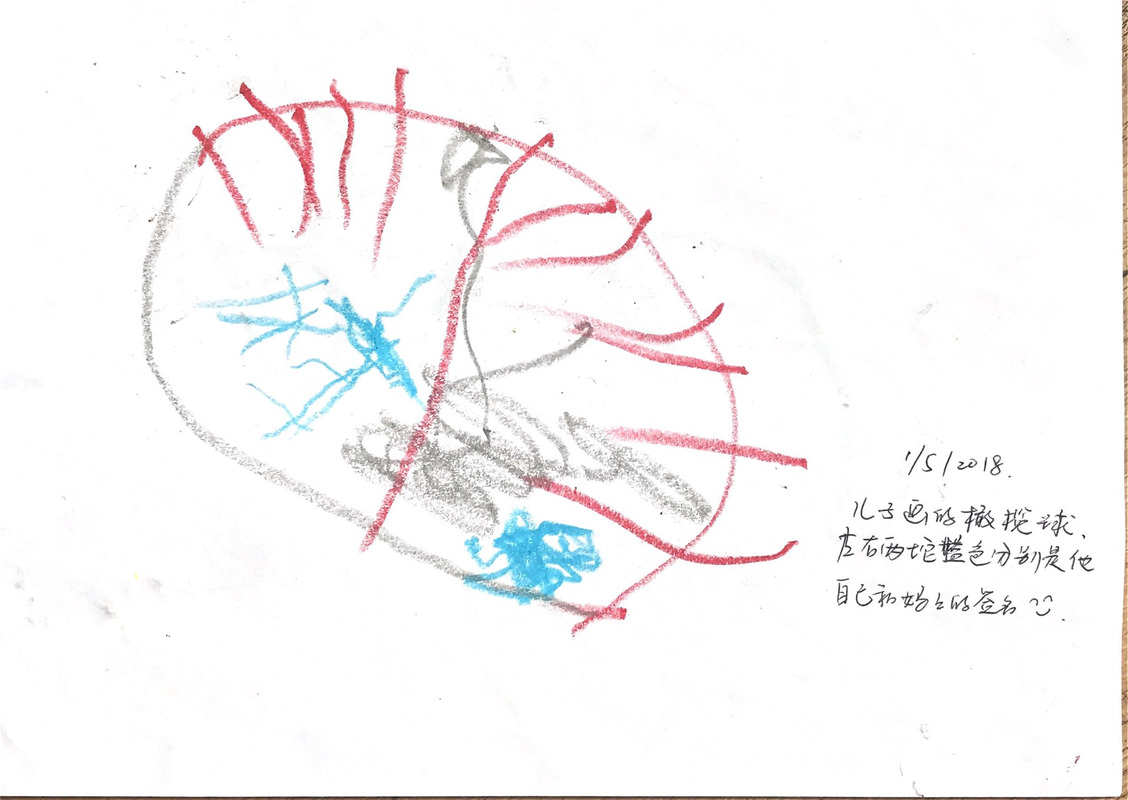 1/5/2018.
儿子画的橄榄球、
左右两坨蓝色分别是他
自己和妈々的签名